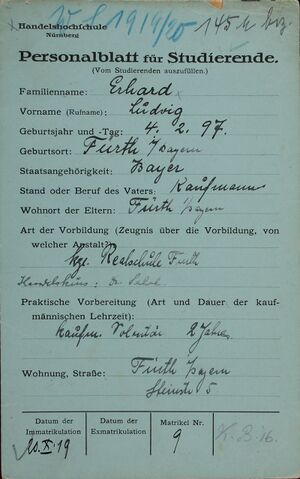 W. S. 1919/20 145 h bz.
Handelshochschule
Nürnberg
Personalblatt für Studierende.
(Vom Studierenden auszufüllen.)
Familienname: Erhard
Vorname (Rufname): Ludwig
Geburtsjahr und -Tag: 4. 2. 97.
Geburtsort: Fürth /Bayern
Staatsangehörigkeit: Bayer
Stand oder Beruf des Vaters: Kaufmann
Wohnort der Eltern: Fürth Bayern
Art der Vorbildung (Zeugnis über die Vorbildung, von
welcher Anstalt?)
kgl. Realschule Fürth
Handelskurs: Dr.
Praktische Vorbereitung (Art und Dauer der kauf-
männischen Lehrzeit):
Kaufm. Volontär 2 Jahre.
Wohnung, Straße: Fürth /Bayern
Sternstr 5
Datum der Immatrikulation
Datum der Exmatrikulation
Matrikel Nr.
20. X. 19
9
K. B. 16.